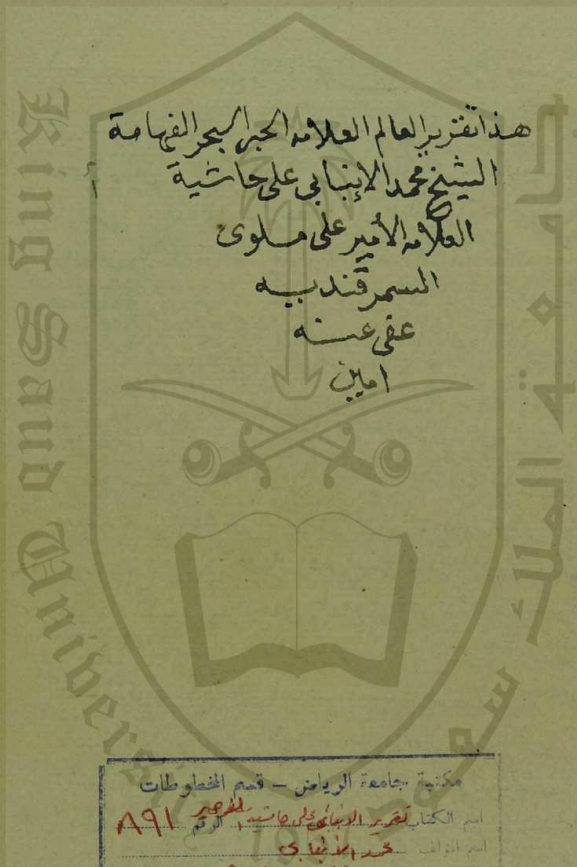 هذا تقرير العالم العلامه الحبر البحر الفهامة
الشيخ محمد الإنبابى على حاشية
العلامه الأمير على ملوى
السمرقنديه
عفى عنه
امين
أ
King Saud University
جامعة الملك سعود
مكتبة جامعة الرياض - قسم المخطوطات
اسم الكتاب تقرير الانبابي على حاشية الرقم ٨٩١
اسم المؤلف محمد الانبابي